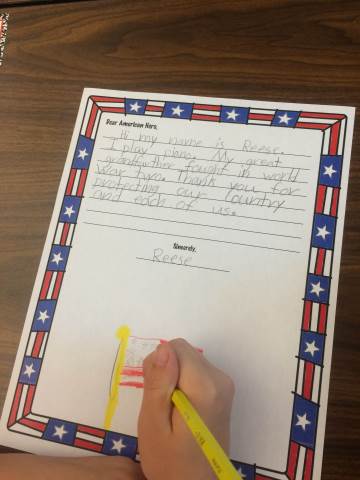 Dear American Hero,
Hi my name is Reese.
I play piano. My great
grandfather fought in world
war two. Thank you for
protecting our country
and each of us.
Sincerely,
Reese